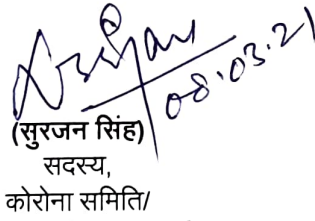 08.03.21
(सुरजन सिंह)
सदस्य,
कोरोना समिति/